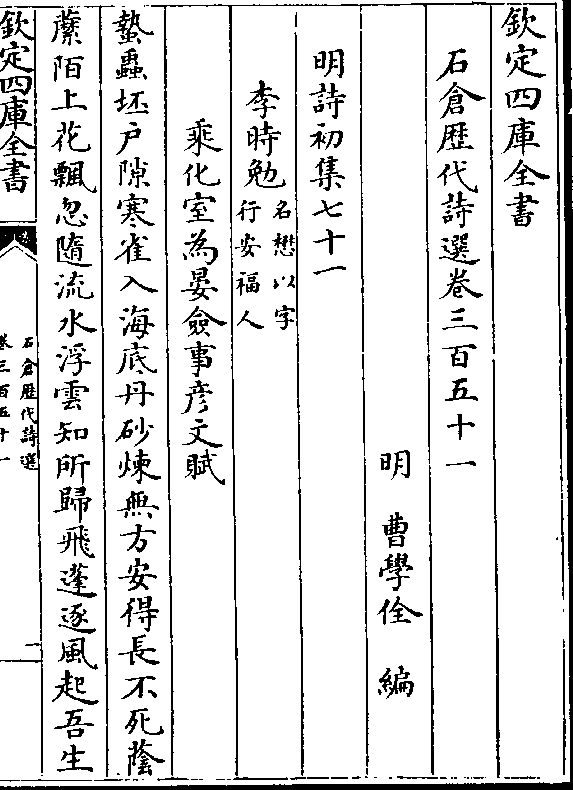 欽定四庫全書
石倉歴代詩選卷三百五十一
明 曹學佺 編
明詩初集七十一
李時勉名懋以字行安福人
乘化室為晏僉事彦文賦
蟄蟲坯戸隙寒雀入海底丹砂煉無方安得長不死蔭
蘂陌上花飄忽隨流水浮雲知所歸飛蓬逐風起吾生
欽定四庫全書
石倉歴代詩選
卷三百五十一
一